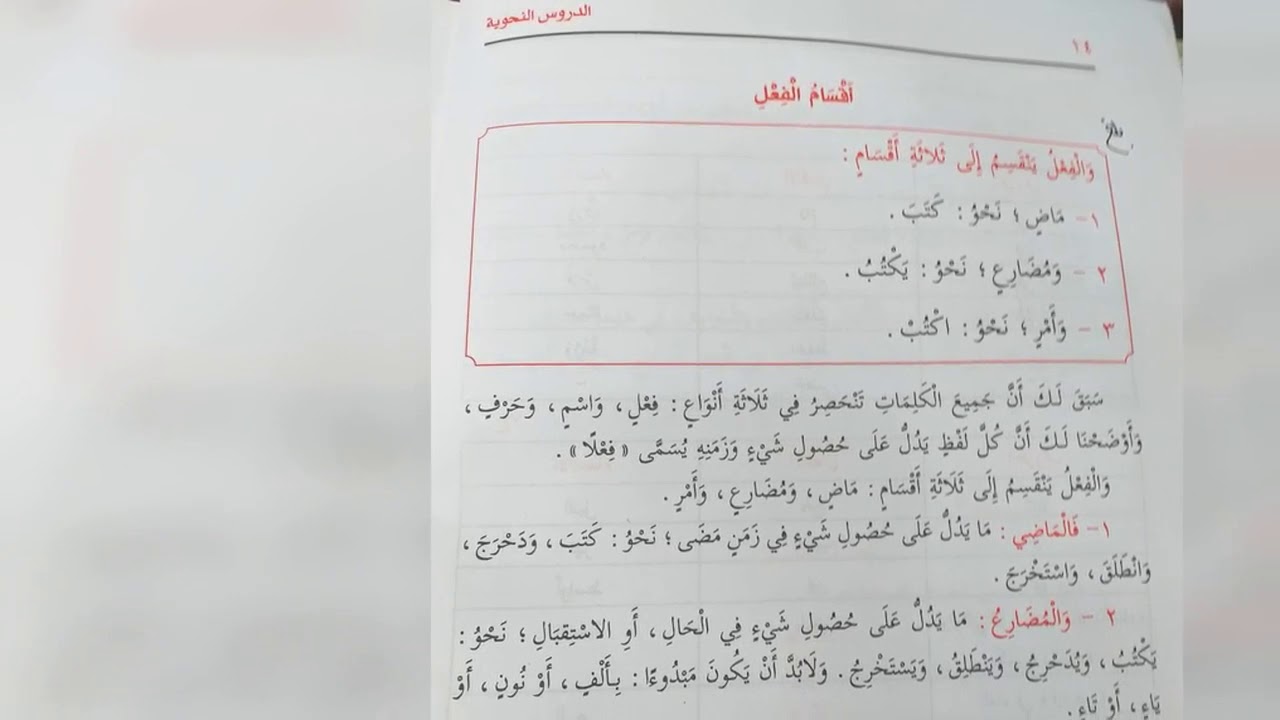 الدروس النحوية
١٤
أَقْسَامُ الْفِعْلِ
وَالْفِعْلُ يَنْقَسِمُ إِلَى ثَلَاثَةِ أَقْسَامٍ :
١- مَاضٍ ؛ نَحْوُ : كَتَبَ .
٢ - وَمُضَارِعٍ ؛ نَحْوُ : يَكْتُبُ .
٣ - وَأَمْرٍ ؛ نَحْوُ : اكْتُبْ .
سَبَقَ لَكَ أَنَّ جَمِيعَ الْكَلِمَاتِ تَنْحَصِرُ فِي ثَلَاثَةِ أَنْوَاعٍ : فِعْلٍ ، وَاسْمٍ ، وَحَرْفٍ ،
وَأَوْضَحْنَا لَكَ أَنَّ كُلَّ لَفْظٍ يَدُلُّ عَلَى حُصُولِ شَيْءٍ وَزَمَنِهِ يُسَمَّى « فِعْلًا » .
وَالْفِعْلُ يَنْقَسِمُ إِلَى ثَلَاثَةِ أَقْسَامٍ : مَاضٍ ، وَمُضَارِعٍ ، وَأَمْرٍ .
١- فَالْمَاضِي : مَا يَدُلُّ عَلَى حُصُولِ شَيْءٍ فِي زَمَنٍ مَضَى ؛ نَحْوُ : كَتَبَ ، وَدَحْرَجَ ،
وَانْطَلَقَ ، وَاسْتَخْرَجَ .
٢ - وَالْمُضَارِعُ : مَا يَدُلُّ عَلَى حُصُولِ شَيْءٍ فِي الْحَالِ ، أَوِ الاسْتِقْبَالِ ؛ نَحْوُ :
يَكْتُبُ ، وَيُدَحْرِجُ ، وَيَنْطَلِقُ ، وَيَسْتَخْرِجُ . وَلَابُدَّ أَنْ يَكُونَ مَبْدُوءًا : بِأَلْفٍ ، أَوْ نُونٍ ، أَوْ
يَاءٍ ، أَوْ تَاءٍ .